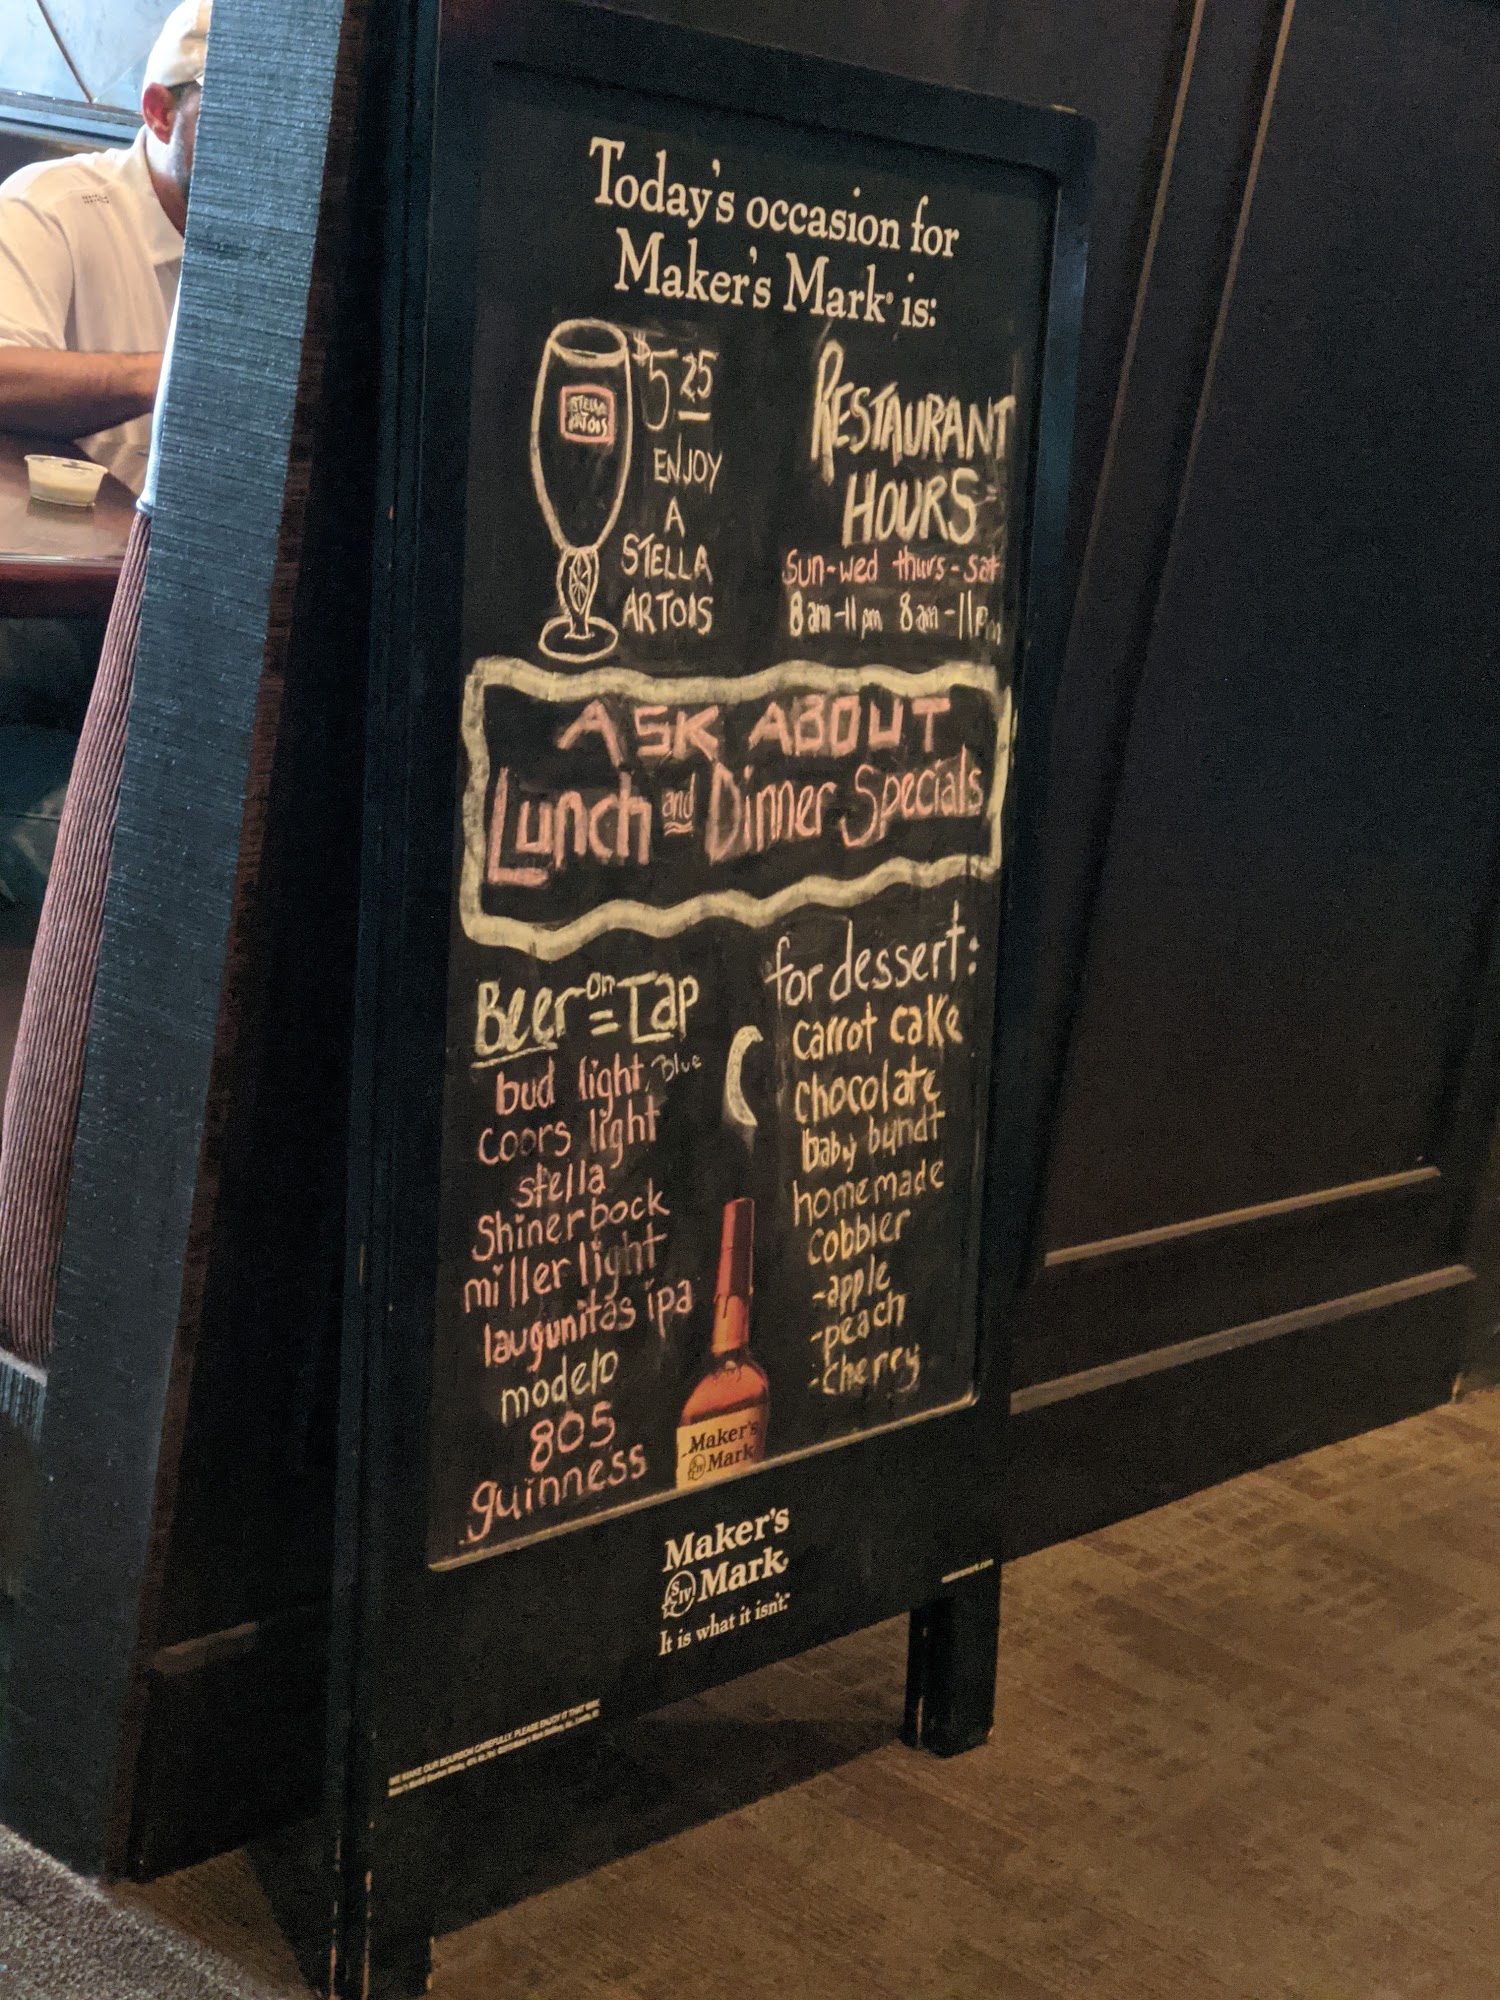 Today's occasion for
Maker's Mark® is:
STELLA
ARTOIS
$5.25
ENJOY
A
STELLA
ARTOIS
RESTAURANT
HOURS
Sun-wed thurs-sat
8am-11pm 8am-11pm
ASK ABOUT
Lunch and Dinner Specials
Beer on Tap
bud light, Blue
coors light
stella
Shiner bock
miller light
laugunitas ipa
modelo
805
guinness
for dessert:
carrot cake
chocolate
baby bundt
homemade
cobbler
-apple
-peach
-cherry
Maker's
Mark
Maker's
SIV Mark
It is what it isn't.
WE MAKE OUR BOURBON CAREFULLY. PLEASE ENJOY IT THAT WAY.
makersmark.com